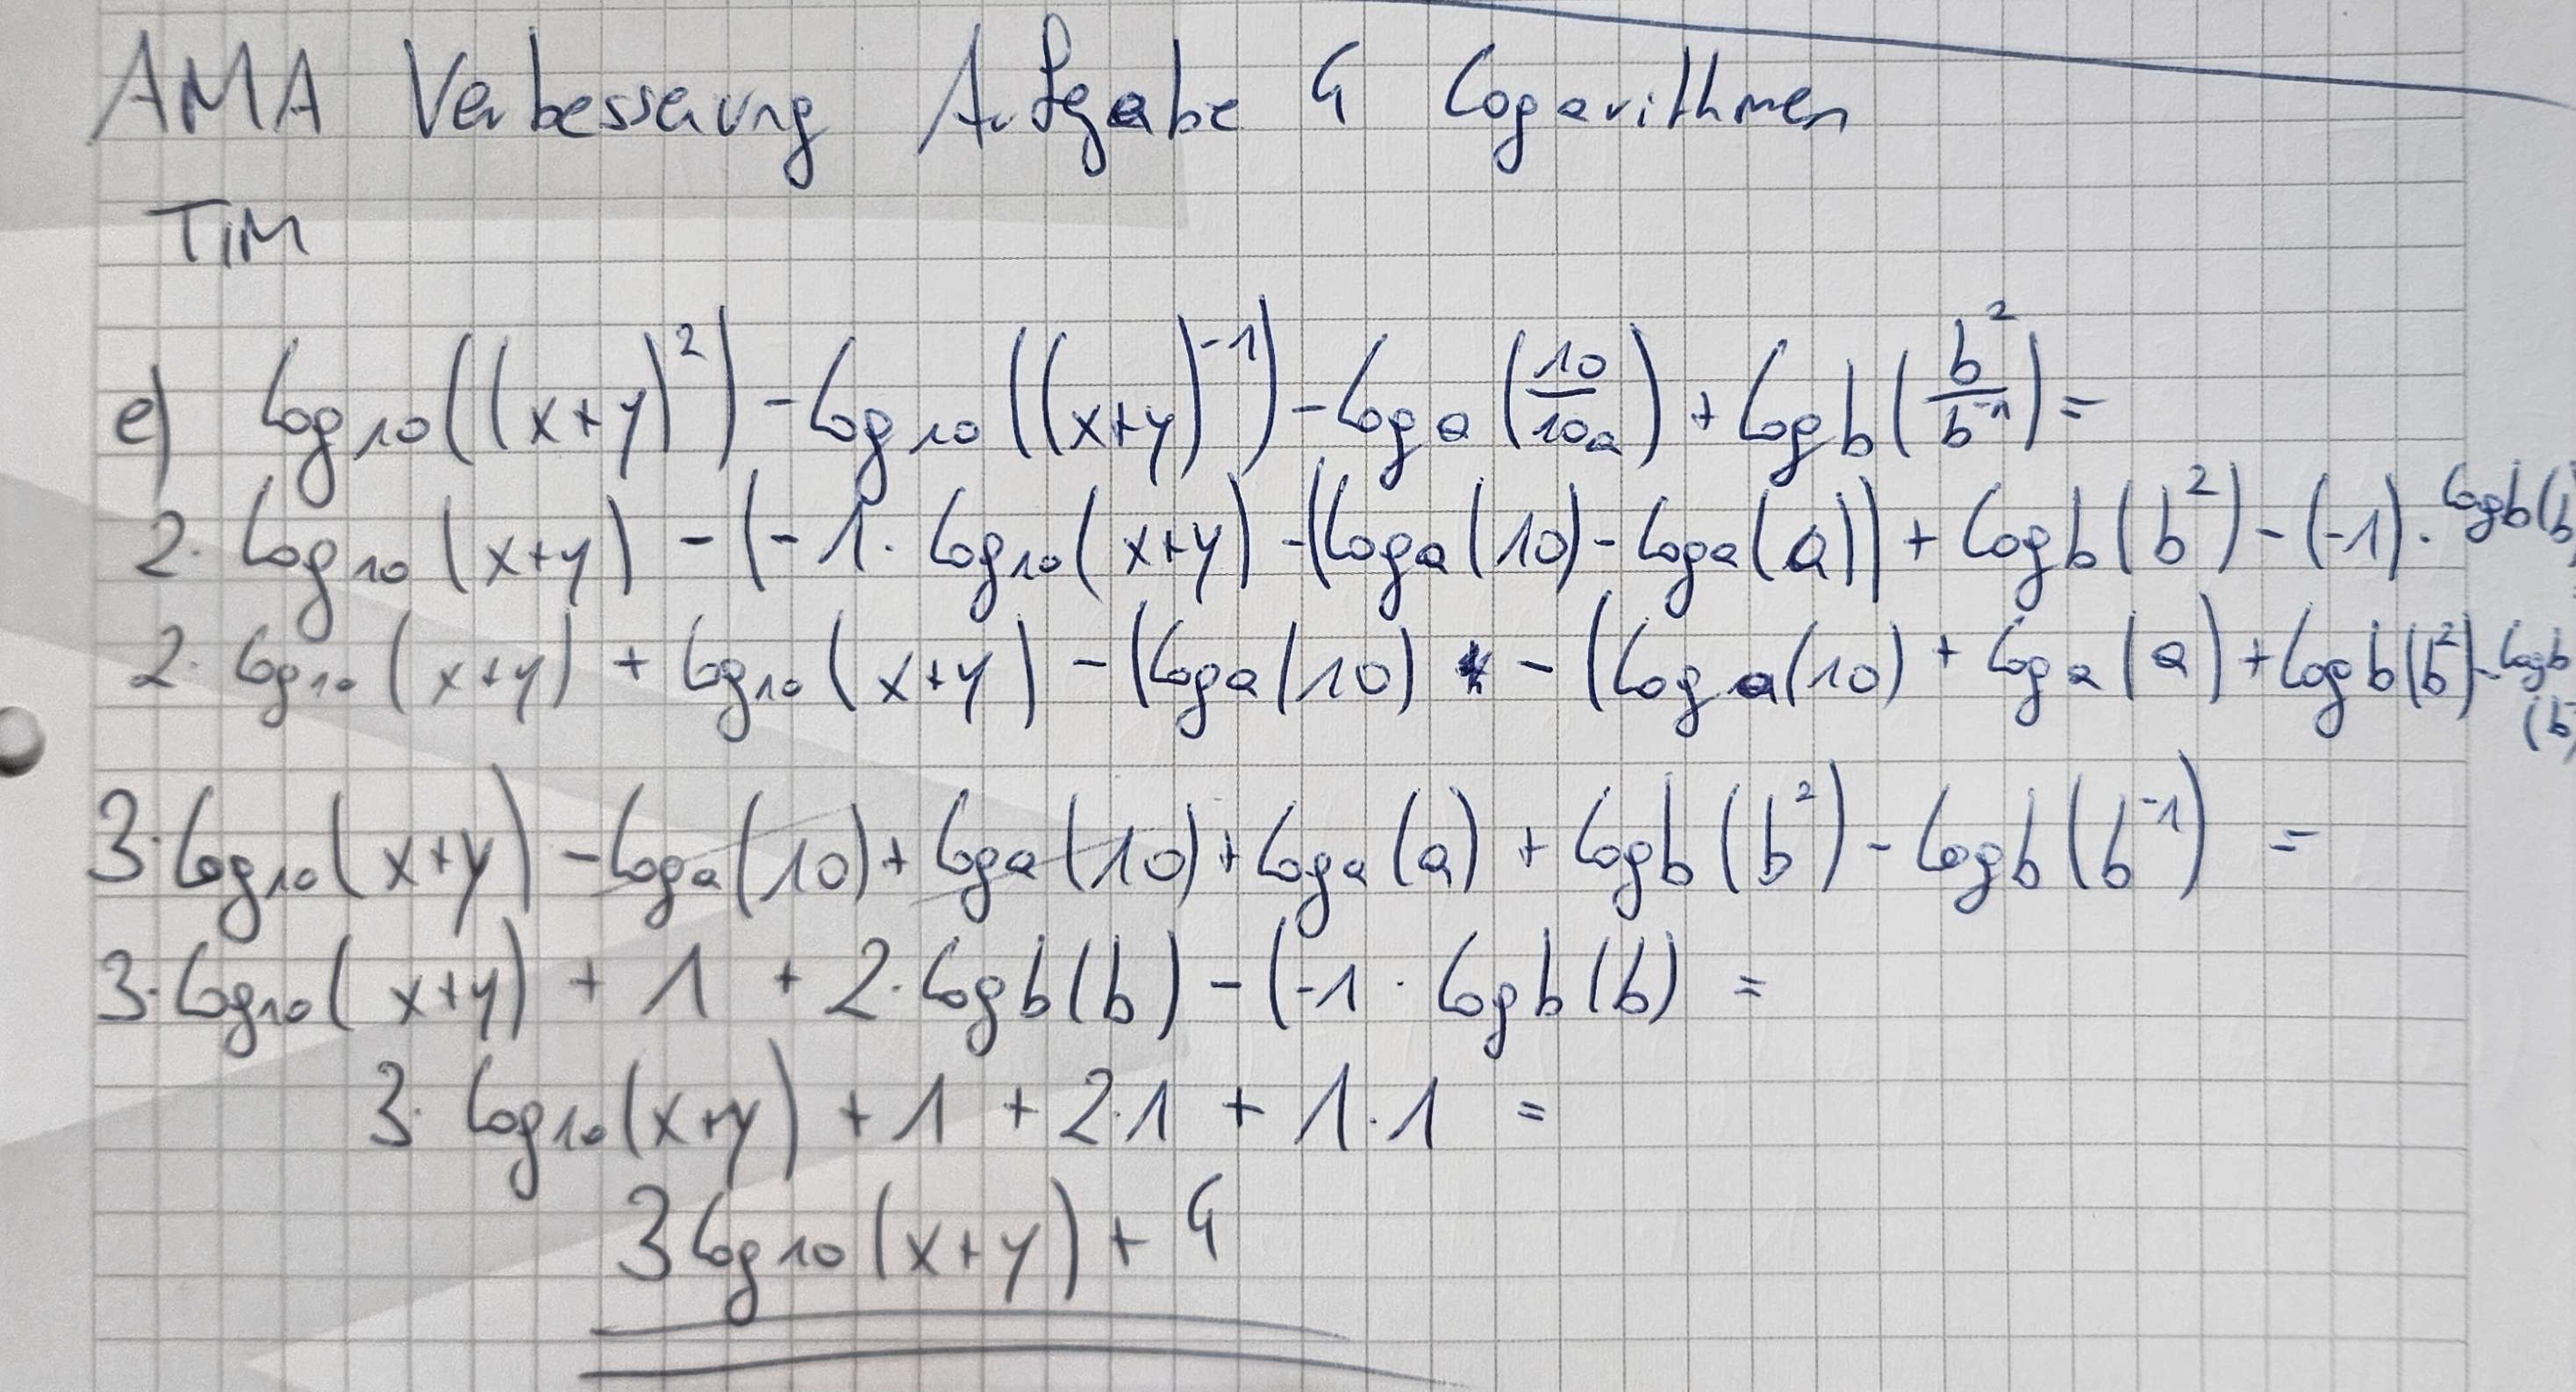 AMA Verbesserung Aufgabe 4 Logarithmen
TIM
e) log₁₀((x+y)²) - log₁₀((x+y)⁻¹) - logₐ(10/10a) + log b(b²/b⁻¹) =
2· log₁₀(x+y) - (-1· log₁₀(x+y) - (logₐ(10) - logₐ(a)) + log b(b²) - (-1)· log b(b
2· log₁₀(x+y) + log₁₀(x+y) - (logₐ(10) - (logₐ(10) + logₐ(a) + log b(b²) - log b
(b)
3· log₁₀(x+y) - logₐ(10) + logₐ(10) + logₐ(a) + log b(b²) - log b(b⁻¹) =
3· log₁₀(x+y) + 1 + 2· log b(b) - (-1 · log b(b) =
3· log₁₀(x+y) + 1 + 2·1 + 1·1 =
3 log₁₀(x+y) + 4